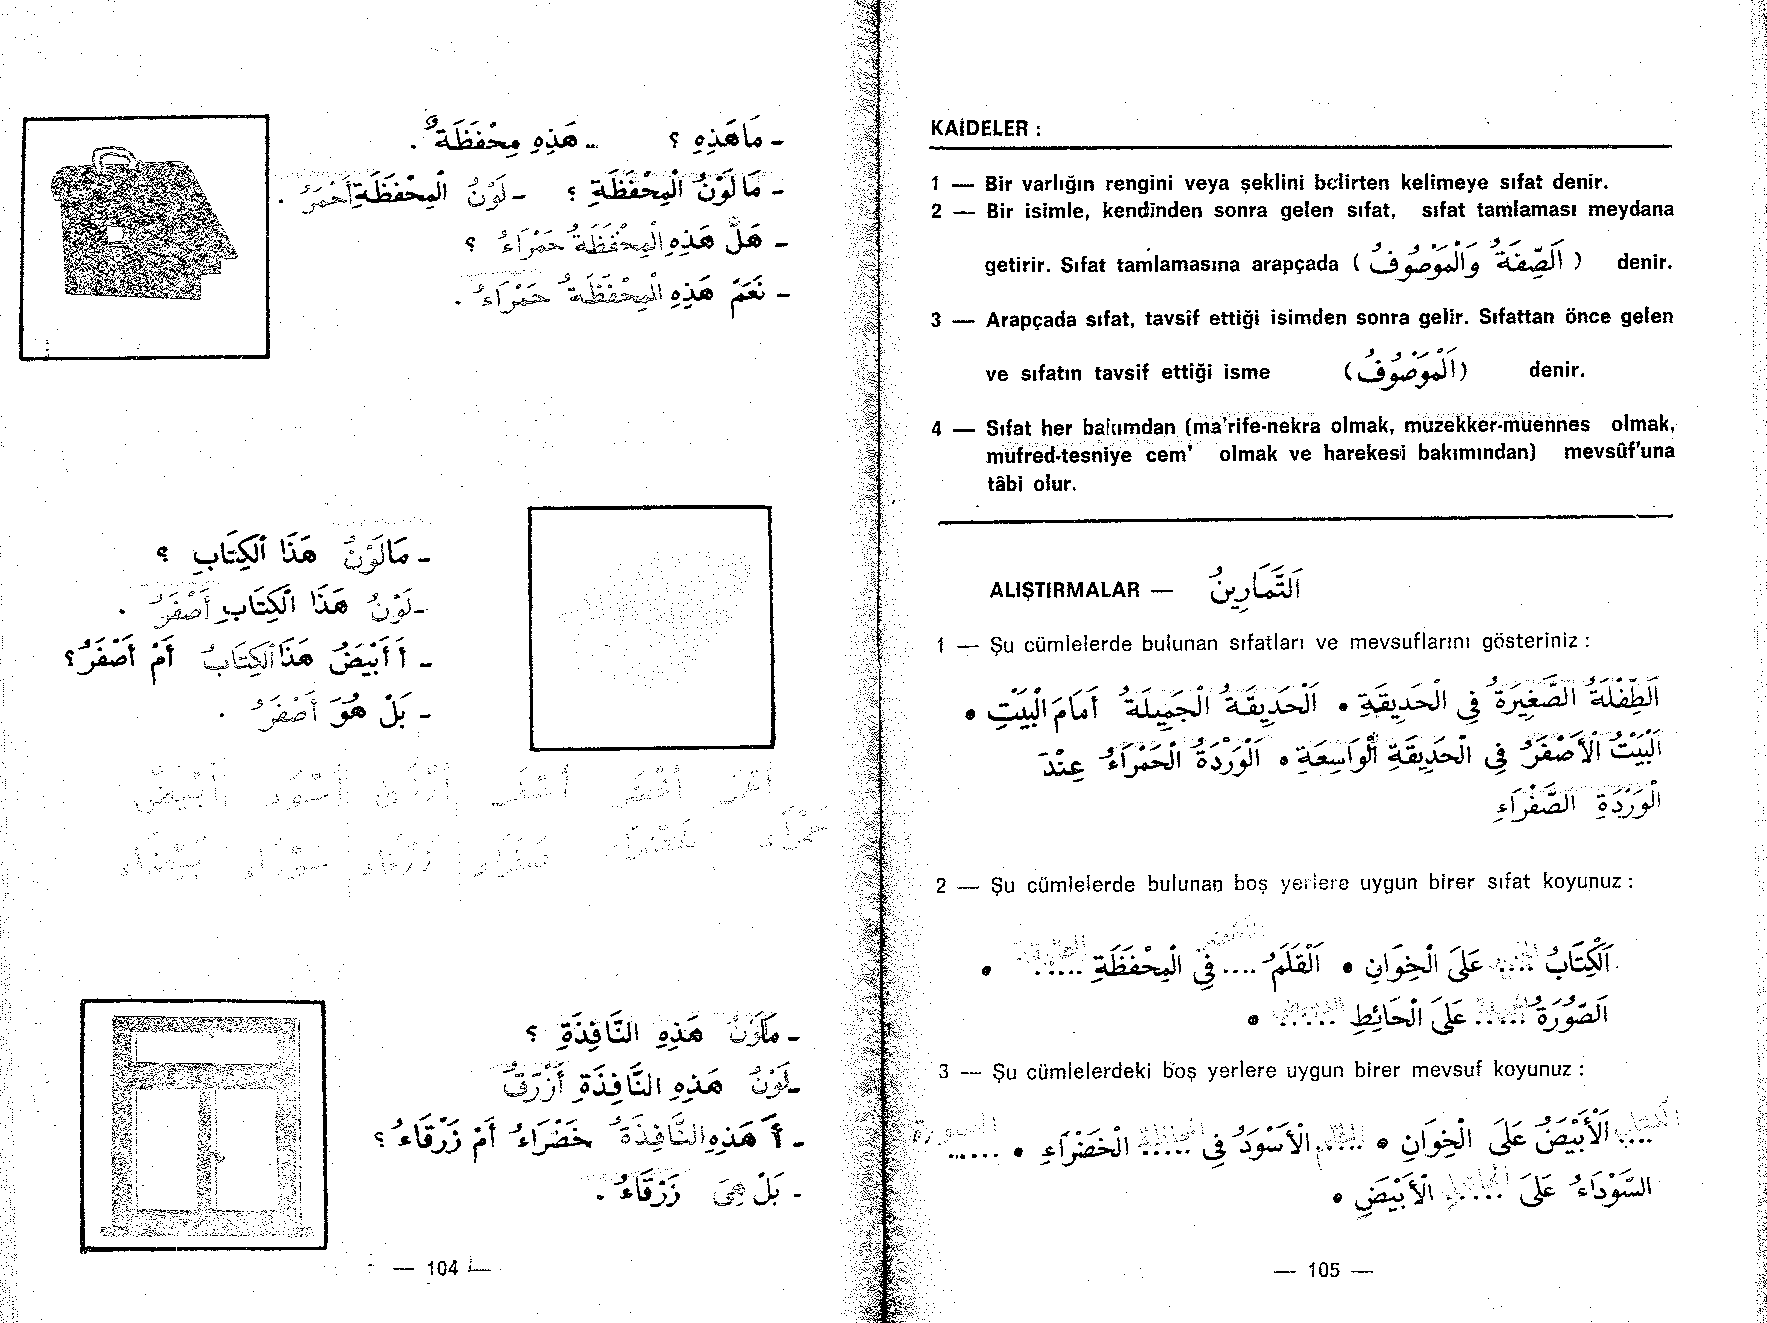 - مَاهَذِهِ ؟ - هَذِهِ مِحْفَظَةٌ .
- مَا لَوْنُ الْمِحْفَظَةِ ؟ - لَوْنُ الْمِحْفَظَةِ أَحْمَرُ .
- هَلْ هَذِهِ الْمِحْفَظَةُ حَمْرَاءُ ؟
- نَعَمْ هَذِهِ الْمِحْفَظَةُ حَمْرَاءُ .
- مَالَوْنُ هَذَا الْكِتَابِ ؟
- لَوْنُ هَذَا الْكِتَابِ أَصْفَرُ .
- أَ أَبْيَضُ هَذَا الْكِتَابُ أَمْ أَصْفَرُ ؟
- بَلْ هُوَ أَصْفَرُ .
- مَالَوْنُ هَذِهِ النَّافِذَةِ ؟
- لَوْنُ هَذِهِ النَّافِذَةِ أَزْرَقُ
- أَ هَذِهِ النَّافِذَةُ خَضْرَاءُ أَمْ زَرْقَاءُ ؟
- بَلْ هِيَ زَرْقَاءُ .
— 104 —
KAİDELER :
1 — Bir varlığın rengini veya şeklini belirten kelimeye sıfat denir.
2 — Bir isimle, kendinden sonra gelen sıfat, sıfat tamlaması meydana
getirir. Sıfat tamlamasına arapçada ( اَلصِّفَةُ وَالْمَوْصُوفُ ) denir.
3 — Arapçada sıfat, tavsif ettiği isimden sonra gelir. Sıfattan önce gelen
ve sıfatın tavsif ettiği isme (اَلْمَوْصُوفُ) denir.
4 — Sıfat her bakımdan (ma'rife-nekra olmak, müzekker-müennes olmak,
müfred-tesniye cem' olmak ve harekesi bakımından) mevsûf'una
tâbi olur.
ALIŞTIRMALAR — اَلتَّمَارِينُ
1 — Şu cümlelerde bulunan sıfatları ve mevsuflarını gösteriniz :
اَلطِّفْلَةُ الصَّغِيرَةُ فِي الْحَدِيقَةِ • اَلْحَدِيقَةُ الْجَمِيلَةُ أَمَامَ الْبَيْتِ •
اَلْبَيْتُ الْأَصْفَرُ فِي الْحَدِيقَةِ الْوَاسِعَةِ • اَلْوَرْدَةُ الْحَمْرَاءُ عِنْدَ
الْوَرْدَةِ الصَّفْرَاءِ
2 — Şu cümlelerde bulunan boş yerlere uygun birer sıfat koyunuz :
اَلْكِتَابُ .... عَلَى الْخِوَانِ • اَلْقَلَمُ .... فِي الْمِحْفَظَةِ ..... •
اَلصُّورَةُ ..... عَلَى الْحَائِطِ ...... •
3 — Şu cümlelerdeki boş yerlere uygun birer mevsuf koyunuz :
.... الْأَبْيَضُ عَلَى الْخِوَانِ • ..... الْأَسْوَدُ فِي ..... الْخَضْرَاءِ • ......
السَّوْدَاءُ عَلَى ..... الْأَبْيَضِ •
— 105 —